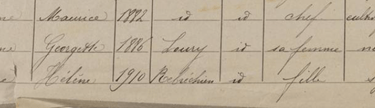 Maurice 1882 id id chef
Georgette 1886 Loury id sa femme
Hélène 1910 Rebréchien id fille